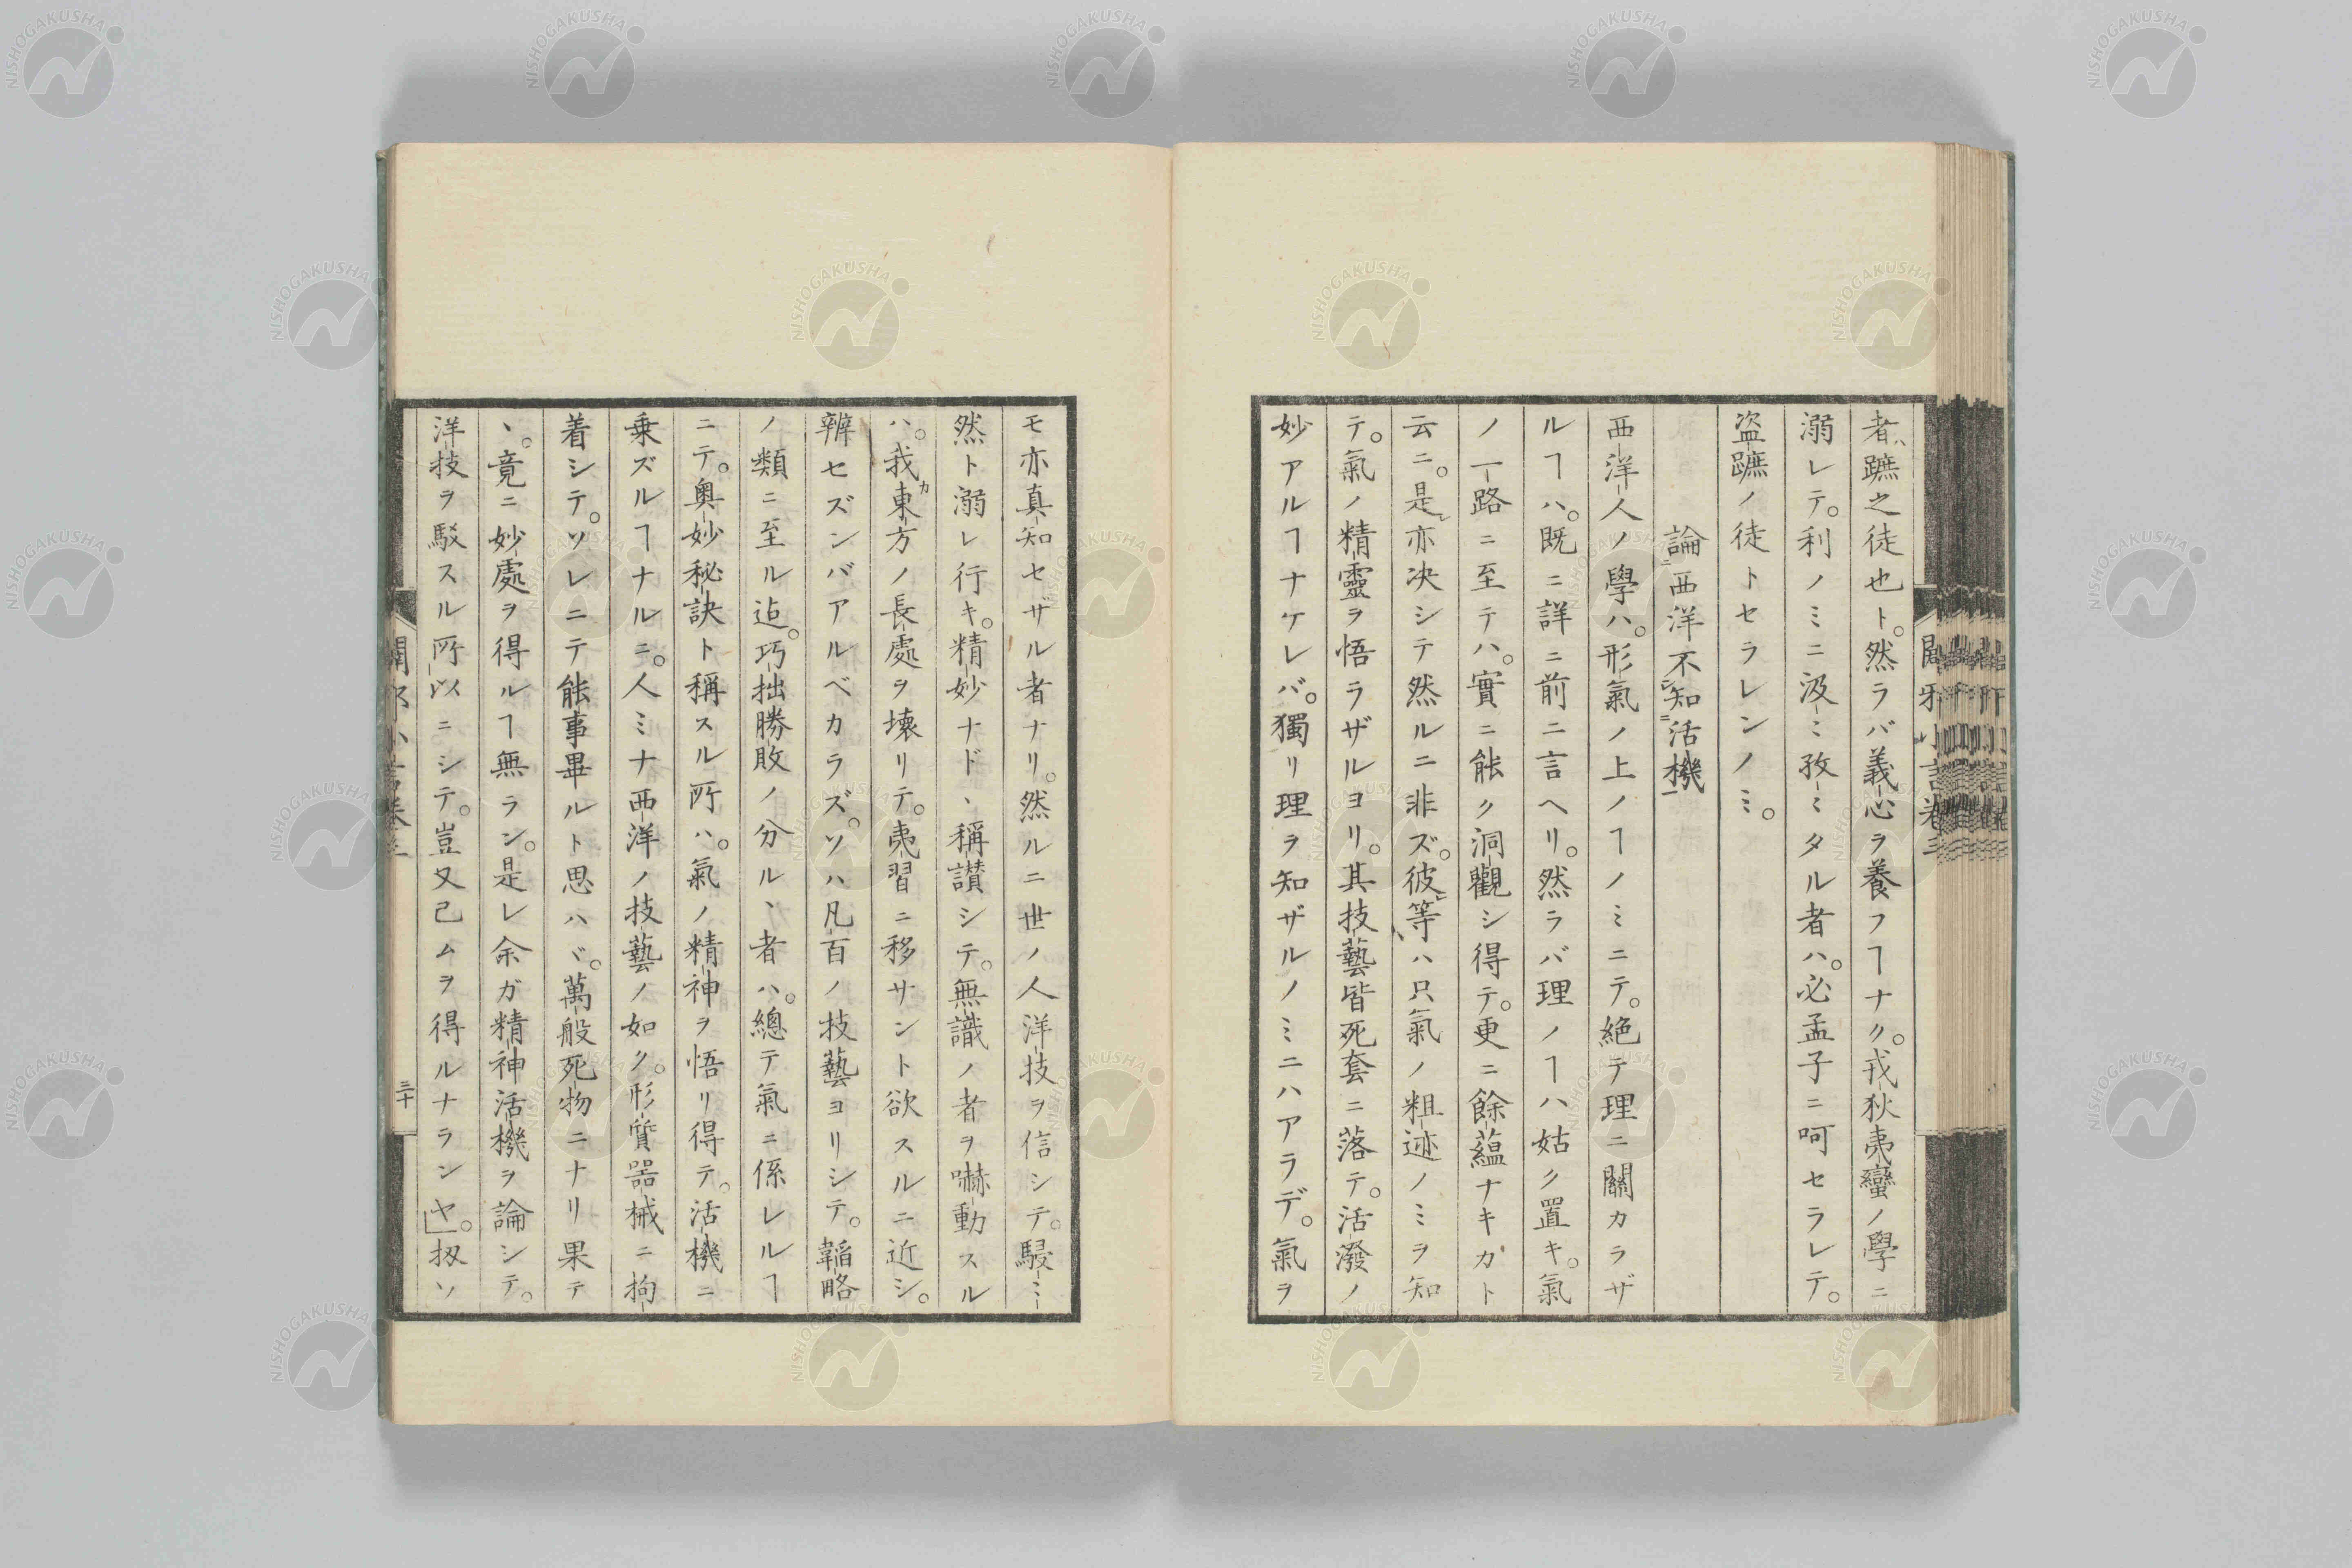 者、蹠之徒也ト。然ラバ義心ヲ養フヿナク。戎狄夷蠻ノ學ニ
溺レテ。利ノミニ汲〻孜〻タル者ハ。必孟子ニ呵セラレテ。
盜蹠ノ徒トセラレンノミ。
論西洋不知活機
西洋人ノ學ハ。形氣ノ上ノヿノミニテ。絶テ理ニ關カラザ
ルヿハ。既ニ詳ニ前ニ言ヘリ。然ラバ理ノヿハ姑ク置キ。氣
ノ一路ニ至テハ。實ニ能ク洞觀シ得テ。更ニ餘蘊ナキカト
云ニ。是亦决シテ然ルニ非ズ。彼等ハ只氣ノ粗迹ノミヲ知
テ。氣ノ精靈ヲ悟ラザルヨリ。其技藝皆死套ニ落テ。活潑ノ
妙アルヿナケレバ。獨リ理ヲ知ザルノミニハアラデ。氣ヲ
モ亦真知セザル者ナリ。然ルニ世ノ人洋技ヲ信シテ。駸〻
然ト溺レ行キ。精妙ナド、稱讃シテ。無識ノ者ヲ嚇動スル
ハ。我東方ノ長處ヲ壞リテ。夷習ニ移サント欲スルニ近シ。
辨セズンバアルベカラズ。ソハ凡百ノ技藝ヨリシテ。韜略
ノ類ニ至ル迄。巧拙勝敗ノ分ル、者ハ。總テ氣ニ係レルヿ
ニテ。奥妙秘訣ト稱スル所ハ。氣ノ精神ヲ悟リ得テ。活機ニ
乗ズルヿナルニ。人ミナ西洋ノ技藝ノ如ク。形質器械ニ拘
着シテ。ソレニテ能事畢ルト思ハヾ。萬般死物ニナリ果テ
、。竟ニ妙處ヲ得ルヿ無ラン。是レ余ガ精神活機ヲ論シテ。
洋技ヲ駁スル所以ニシテ。豈又已ムヲ得ルナランヤ。扨ソ
闢邪小言卷三
三十
NISHOGAKUSHA